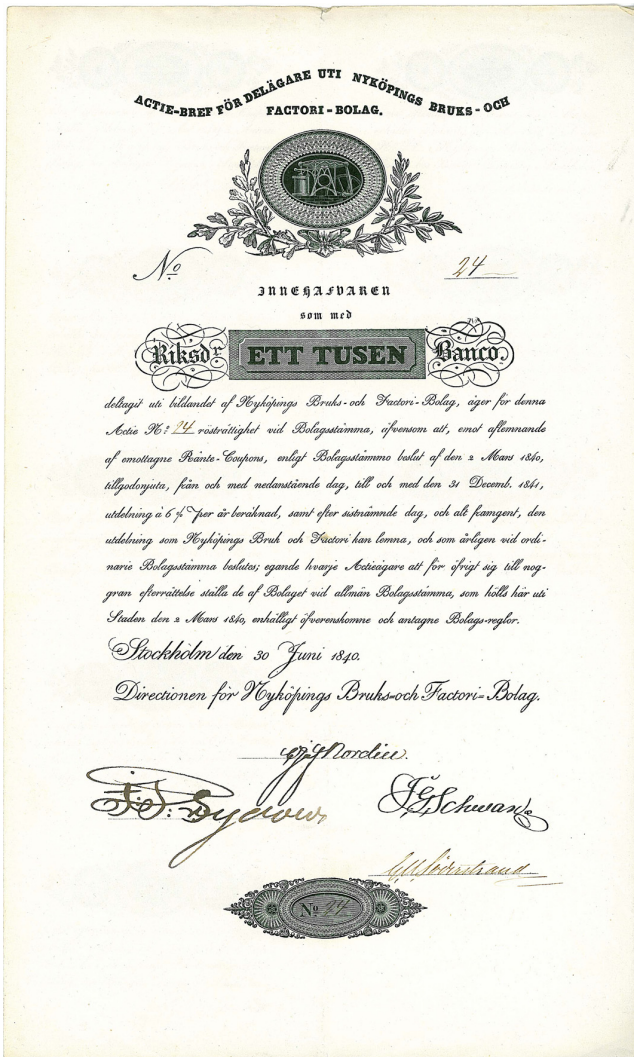 ACTIE-BREF FÖR DELÄGARE UTI NYKÖPINGS BRUKS-OCH
FACTORI-BOLAG.
No 24
INNEHAFVAREN
som med
Riksdr ETT TUSEN Banco.
deltagit uti bildandet af Nyköpings Bruks- och Factori-Bolag, äger för denna
Actie No: 24 rösträttighet vid Bolagsstämma, äfvensom att, emot aflemnande
af emottagne Ränte-Coupons, enligt Bolagsstämmo beslut af den 2 Mars 1840,
tillgodonjuta, från och med nedanstående dag, till och med den 31 Decemb. 1841,
utdelning à 6 % per år beräknad, samt efter sistnämnde dag, och alt framgent, den
utdelning som Nyköpings Bruk och Factori kan lemna, och som årligen vid ordi-
narie Bolagsstämma beslutes; egande hvarje Actieägare att för öfrigt sig till nog-
gran efterrättelse ställa de af Bolaget vid allmän Bolagsstämma, som hölls här uti
Staden den 2 Mars 1840, enhälligt öfverenskomne och antagne Bolags-reglor.
Stockholm den 30 Juni 1840.
Directionen för Nyköpings Bruks-och Factori-Bolag.
Nordin.
Schwan
Söderstrand
No 24